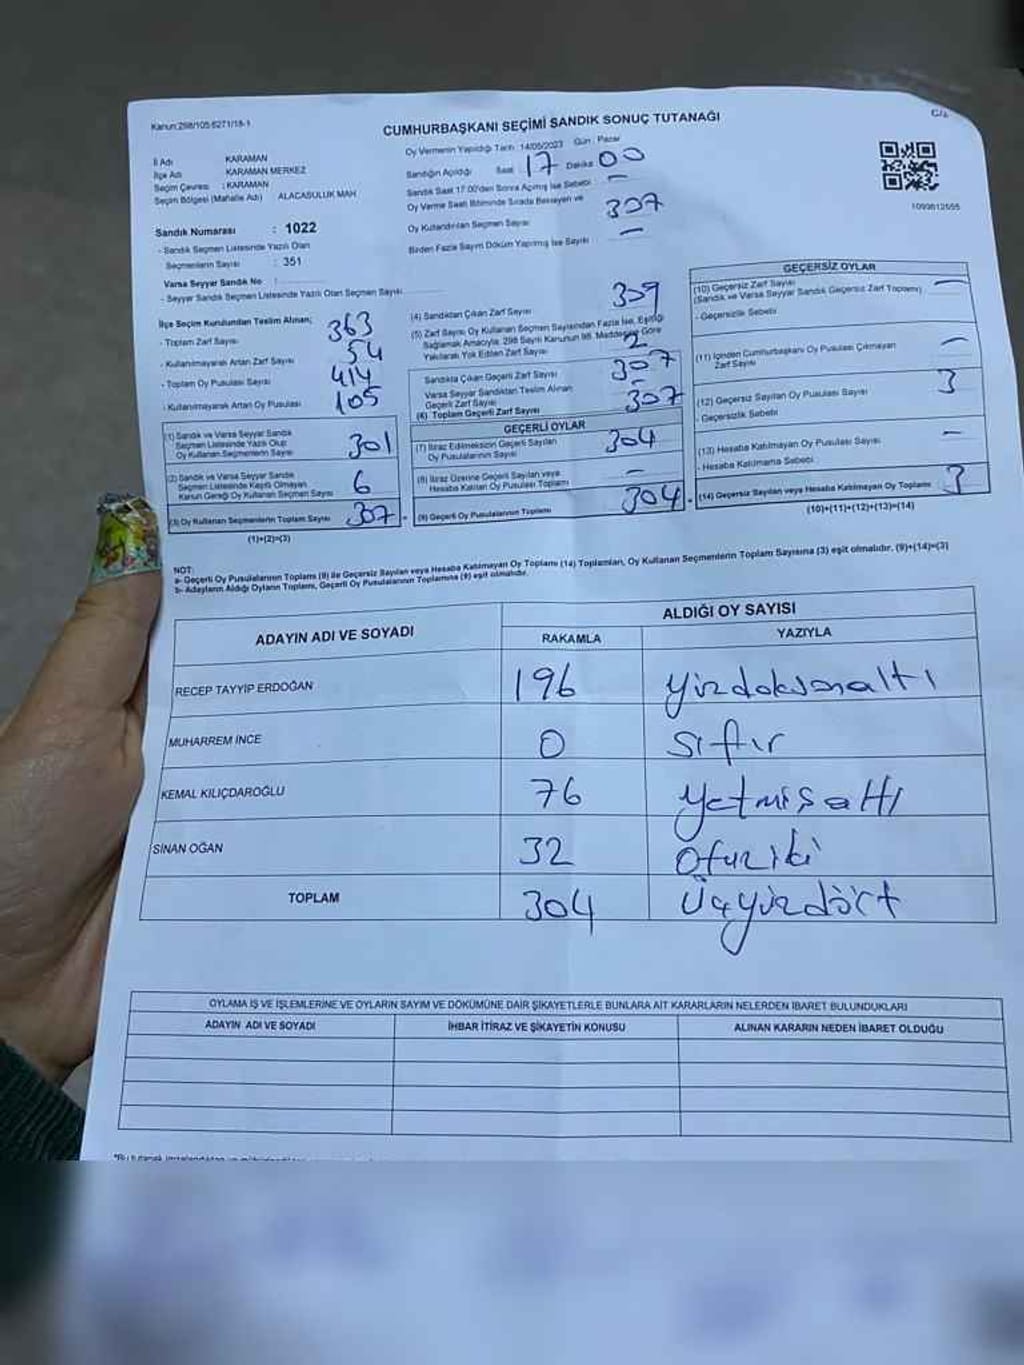 Kanun:298/105 6271/18-1
CUMHURBAŞKANI SEÇİMİ SANDIK SONUÇ TUTANAĞI
İl Adı KARAMAN
İlçe Adı KARAMAN MERKEZ
Seçim Çevresi : KARAMAN
Seçim Bölgesi (Mahalle Adı) ALACASULUK MAH
Sandık Numarası : 1022
- Sandık Seçmen Listesinde Yazılı Olan
Seçmenlerin Sayısı : 351
Varsa Seyyar Sandık No :
- Seyyar Sandık Seçmen Listesinde Yazılı Olan Seçmen Sayısı
Oy Vermenin Yapıldığı Tarih : 14/05/2023 Gün : Pazar
Sandığın Açıldığı Saat : 17 Dakika 00
Sandık Saat 17:00'den Sonra Açılmış İse Sebebi : —
Oy Verme Saati Bitiminde Sırada Bekleyen ve
Oy Kullandırılan Seçmen Sayısı 307
Birden Fazla Sayım Döküm Yapılmış İse Sayısı —
1093612555
İlçe Seçim Kurulundan Teslim Alınan;
- Toplam Zarf Sayısı 363
- Kullanılmayarak Artan Zarf Sayısı 54
- Toplam Oy Pusulası Sayısı 414
- Kullanılmayarak Artan Oy Pusulası 105
(1) Sandık ve Varsa Seyyar Sandık
Seçmen Listesinde Yazılı Olup
Oy Kullanan Seçmenlerin Sayısı 301
(2) Sandık ve Varsa Seyyar Sandık
Seçmen Listesinde Kayıtlı Olmayan
Kanun Gereği Oy Kullanan Seçmen Sayısı 6
(3) Oy Kullanan Seçmenlerin Toplam Sayısı 307
(1)+(2)=(3)
(4) Sandıktan Çıkan Zarf Sayısı 309
(5) Zarf Sayısı Oy Kullanan Seçmen Sayısından Fazla İse, Eşitliği
Sağlamak Amacıyla, 298 Sayılı Kanunun 98. Maddesine Göre
Yakılarak Yok Edilen Zarf Sayısı 2
Sandıkta Çıkan Geçerli Zarf Sayısı 307
Varsa Seyyar Sandıktan Teslim Alınan
Geçerli Zarf Sayısı —
(6) Toplam Geçerli Zarf Sayısı 307
GEÇERLİ OYLAR
(7) İtiraz Edilmeksizin Geçerli Sayılan
Oy Pusulalarının Sayısı 304
(8) İtiraz Üzerine Geçerli Sayılan veya
Hesaba Katılan Oy Pusulası Toplamı —
(9) Geçerli Oy Pusulalarının Toplamı 304
GEÇERSİZ OYLAR
(10) Geçersiz Zarf Sayısı —
(Sandık ve Varsa Seyyar Sandık Geçersiz Zarf Toplamı)
- Geçersizlik Sebebi
(11) İçinden Cumhurbaşkanı Oy Pusulası Çıkmayan
Zarf Sayısı —
(12) Geçersiz Sayılan Oy Pusulası Sayısı 3
- Geçersizlik Sebebi
(13) Hesaba Katılmayan Oy Pusulası Sayısı —
- Hesaba Katılmama Sebebi
(14) Geçersiz Sayılan veya Hesaba Katılmayan Oy Toplamı 3
(10)+(11)+(12)+(13)=(14)
NOT:
a- Geçerli Oy Pusulalarının Toplamı (9) ile Geçersiz Sayılan veya Hesaba Katılmayan Oy Toplamı (14) Toplamları, Oy Kullanan Seçmenlerin Toplam Sayısına (3) eşit olmalıdır. (9)+(14)=(3)
b- Adayların Aldığı Oyların Toplamı, Geçerli Oy Pusulalarının Toplamına (9) eşit olmalıdır.
ADAYIN ADI VE SOYADI ALDIĞI OY SAYISI
RAKAMLA YAZIYLA
RECEP TAYYİP ERDOĞAN 196 yüzdoksanaltı
MUHARREM İNCE 0 sıfır
KEMAL KILIÇDAROĞLU 76 yetmişaltı
SİNAN OĞAN 32 otuziki
TOPLAM 304 Üçyüzdört
OYLAMA İŞ VE İŞLEMLERİNE VE OYLARIN SAYIM VE DÖKÜMÜNE DAİR ŞİKAYETLERLE BUNLARA AİT KARARLARIN NELERDEN İBARET BULUNDUKLARI
ADAYIN ADI VE SOYADI İHBAR İTİRAZ VE ŞİKAYETİN KONUSU ALINAN KARARIN NEDEN İBARET OLDUĞU